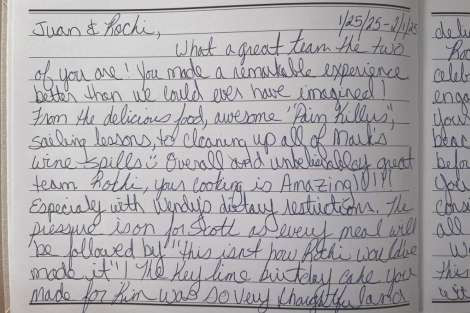 Juan & Rochi,
1/25/25 - 2/1/25
What a great team the two
of you are! You made a remarkable experience
better than we could ever have imagined!
From the delicious food, awesome "Pain Killers",
sailing lessons, to cleaning up all of Mark's
wine spills :) Overall and unbelievabley great
team Rochi, your cooking is Amazing!0!!!
Especialy with Wendy's dietary restrictions. The
pressure is on for Scott as every meal will
be followed by "this isn't how Rochi would have
made it"! The Key lime birthday cake you
made for Kim was so very thoughtful and